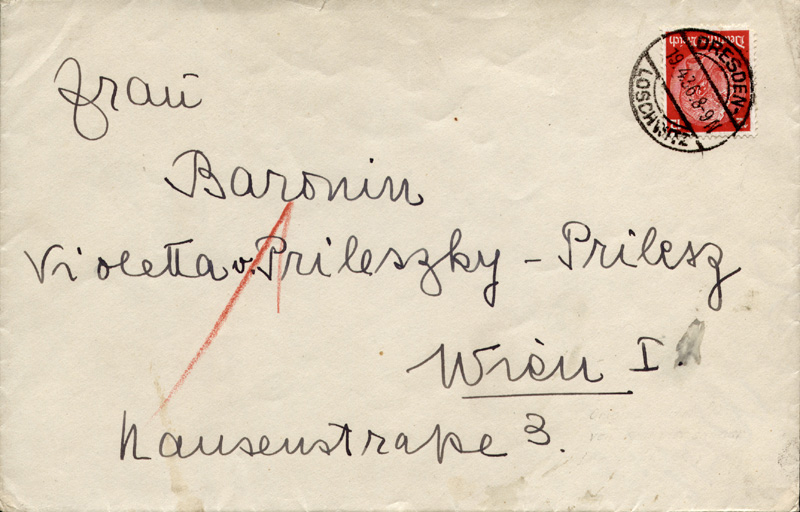 Frau
Baronin
Violetta v. Prileszky - Prilesz
Wien I.
Hansenstraße 3.
Deutsches Reich
DRESDEN-
19.4.36.8-9N
LOSCHWITZ